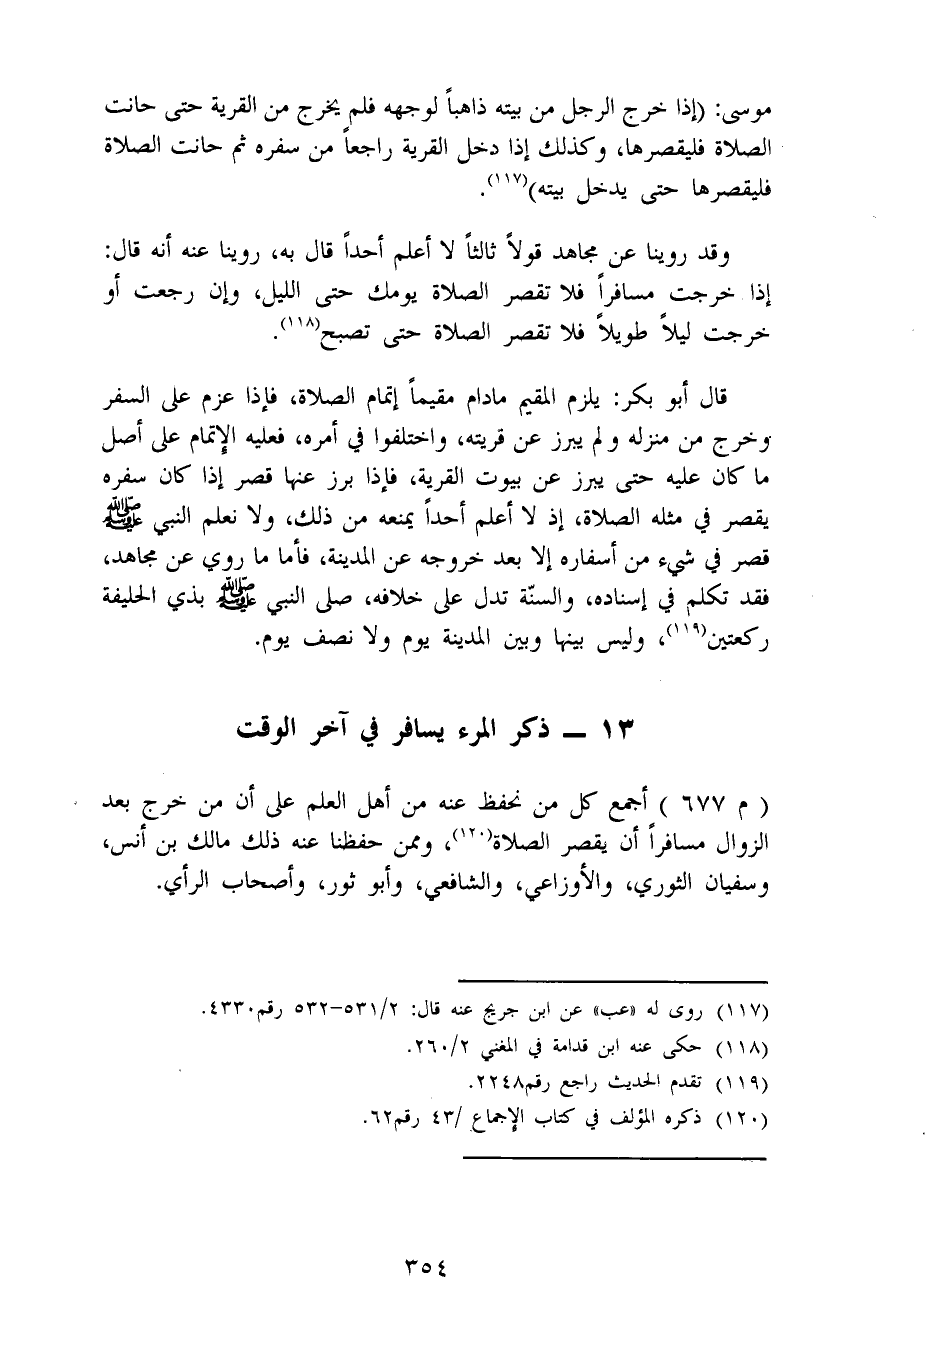 موسى: (إذا خرج الرجل من بيته ذاهباً لوجهه فلم يخرج من القرية حتى حانت
الصلاة فليقصرها، وكذلك إذا دخل القرية راجعاً من سفره ثم حانت الصلاة
فليقصرها حتى يدخل بيته)(١١٧).
وقد روينا عن مجاهد قولاً ثالثاً لا أعلم أحداً قال به، روينا عنه أنه قال:
إذا خرجت مسافراً فلا تقصر الصلاة يومك حتى الليل، وإن رجعت أو
خرجت ليلاً طويلاً فلا تقصر الصلاة حتى تصبح(١١٨).
قال أبو بكر: يلزم المقيم مادام مقيماً إتمام الصلاة، فإذا عزم على السفر
وخرج من منزله ولم يبرز عن قريته، واختلفوا في أمره، فعليه الإتمام على أصل
ما كان عليه حتى يبرز عن بيوت القرية، فإذا برز عنها قصر إذا كان سفره
يقصر في مثله الصلاة، إذ لا أعلم أحداً يمنعه من ذلك، ولا نعلم النبي ﷺ
قصر في شيء من أسفاره إلا بعد خروجه عن المدينة، فأما ما روي عن مجاهد،
فقد تكلم في إسناده، والسنّة تدل على خلافه، صلى النبي ﷺ بذي الحليفة
ركعتين(١١٩)، وليس بينها وبين المدينة يوم ولا نصف يوم.
١٣ ــ ذكر المرء يسافر في آخر الوقت
( م ٦٧٧ ) أجمع كل من نحفظ عنه من أهل العلم على أن من خرج بعد
الزوال مسافراً أن يقصر الصلاة(١٢٠)، وممن حفظنا عنه ذلك مالك بن أنس،
وسفيان الثوري، والأوزاعي، والشافعي، وأبو ثور، وأصحاب الرأي.
(١١٧) روى له «عب» عن ابن جريج عنه قال: ٥٣١/٢–٥٣٢ رقم٤٣٣٠.
(١١٨) حكى عنه ابن قدامة في المغني ٢٦٠/٢.
(١١٩) تقدم الحديث راجع رقم٢٢٤٨.
(١٢٠) ذكره المؤلف في كتاب الإجماع /٤٣ رقم٦٢.
٣٥٤